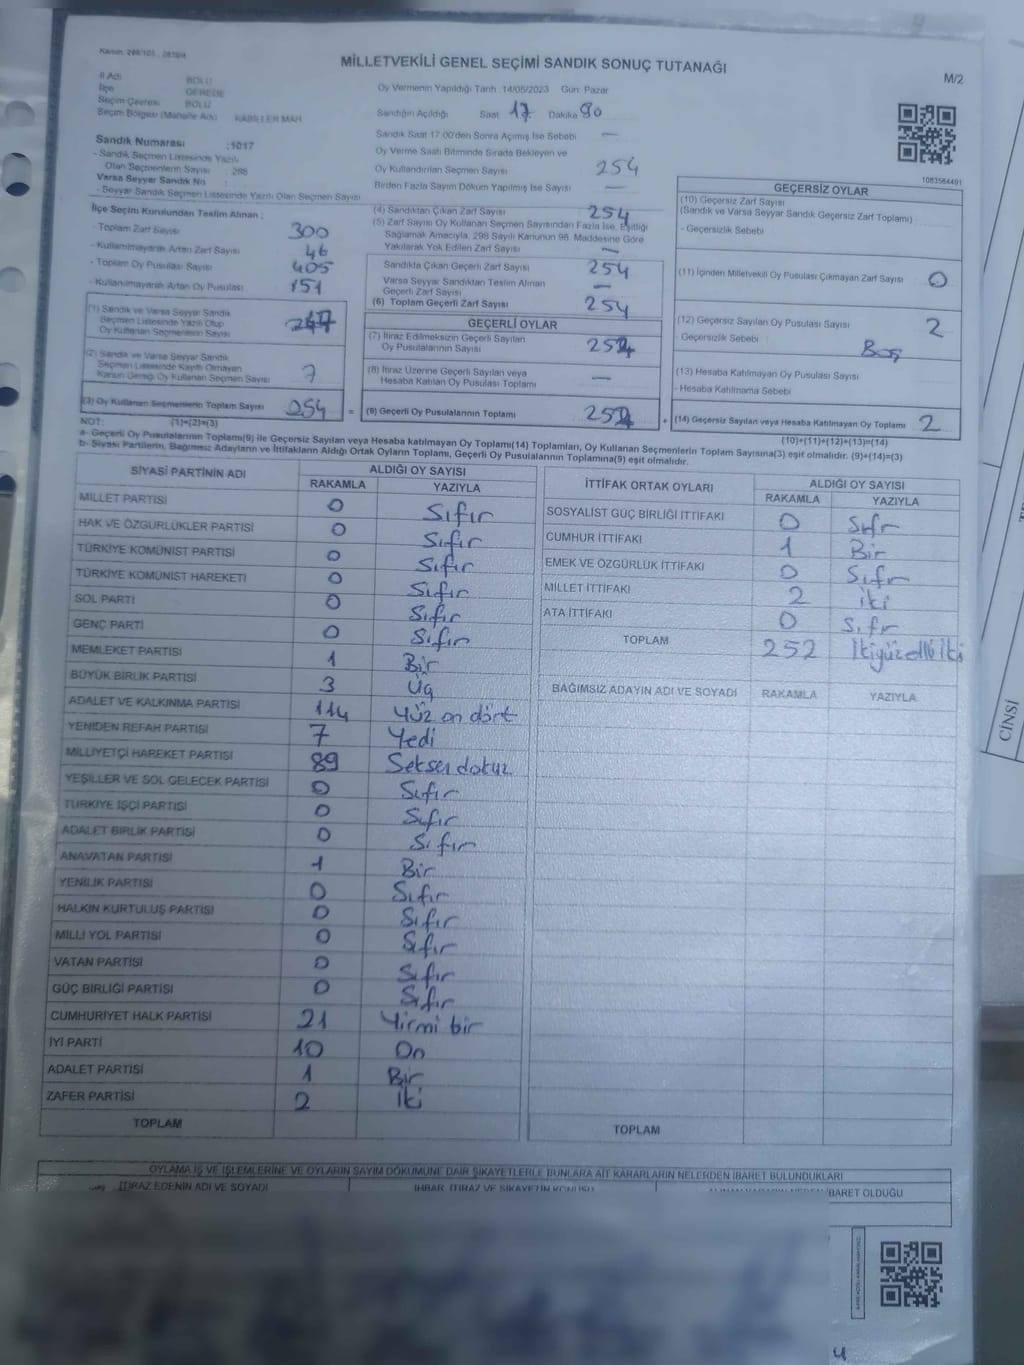 Kanun: 298/105
MİLLETVEKİLİ GENEL SEÇİMİ SANDIK SONUÇ TUTANAĞI
M/2
İl Adı BOLU
İlçe GEREDE
Seçim Çevresi BOLU
Seçim Bölgesi (Mahalle Adı) KABİLLER MAH
Sandık Numarası :1017
- Sandık Seçmen Listesinde Yazılı
Olan Seçmenlerin Sayısı : 288
Varsa Seyyar Sandık No :
- Seyyar Sandık Seçmen Listesinde Yazılı Olan Seçmen Sayısı
Oy Vermenin Yapıldığı Tarih :14/05/2023 Gün: Pazar
Sandığın Açıldığı Saat 17 Dakika
Sandık Saat 17:00'den Sonra Açılmış İse Sebebi —
Oy Verme Saati Bitiminde Sırada Bekleyen ve
Oy Kullandırılan Seçmen Sayısı 254
Birden Fazla Sayım Döküm Yapılmış İse Sayısı —
1083564491
İlçe Seçim Kurulundan Teslim Alınan ;
- Toplam Zarf Sayısı 300
- Kullanılmayarak Artan Zarf Sayısı 46
- Toplam Oy Pusulası Sayısı 405
- Kullanılmayarak Artan Oy Pusulası 151
(1) Sandık ve Varsa Seyyar Sandık
Seçmen Listesinde Yazılı Olup
Oy Kullanan Seçmenlerin Sayısı 247
(2) Sandık ve Varsa Seyyar Sandık
Seçmen Listesinde Kayıtlı Olmayan
Kanun Gereği Oy Kullanan Seçmen Sayısı 7
(3) Oy Kullanan Seçmenlerin Toplam Sayısı 254 =
(1)+(2)=(3)
(4) Sandıktan Çıkan Zarf Sayısı 254
(5) Zarf Sayısı Oy Kullanan Seçmen Sayısından Fazla İse, Eşitliği
Sağlamak Amacıyla, 298 Sayılı Kanunun 98. Maddesine Göre
Yakılarak Yok Edilen Zarf Sayısı —
Sandıkta Çıkan Geçerli Zarf Sayısı 254
Varsa Seyyar Sandıktan Teslim Alınan
Geçerli Zarf Sayısı —
(6) Toplam Geçerli Zarf Sayısı 254
GEÇERLİ OYLAR
(7) İtiraz Edilmeksizin Geçerli Sayılan
Oy Pusulalarının Sayısı 252
(8) İtiraz Üzerine Geçerli Sayılan veya
Hesaba Katılan Oy Pusulası Toplamı —
(9) Geçerli Oy Pusulalarının Toplamı 252 +
GEÇERSİZ OYLAR
(10) Geçersiz Zarf Sayısı
(Sandık ve Varsa Seyyar Sandık Geçersiz Zarf Toplamı)
- Geçersizlik Sebebi
(11) İçinden Milletvekili Oy Pusulası Çıkmayan Zarf Sayısı 0
(12) Geçersiz Sayılan Oy Pusulası Sayısı 2
- Geçersizlik Sebebi Boş
(13) Hesaba Katılmayan Oy Pusulası Sayısı
- Hesaba Katılmama Sebebi
(14) Geçersiz Sayılan veya Hesaba Katılmayan Oy Toplamı 2
(10)+(11)+(12)+(13)=(14)
NOT:
a- Geçerli Oy Pusulalarının Toplamı(9) ile Geçersiz Sayılan veya Hesaba katılmayan Oy Toplamı(14) Toplamları, Oy Kullanan Seçmenlerin Toplam Sayısına(3) eşit olmalıdır. (9)+(14)=(3)
b- Siyasi Partilerin, Bağımsız Adayların ve İttifakların Aldığı Ortak Oyların Toplamı, Geçerli Oy Pusulalarının Toplamına(9) eşit olmalıdır.
SİYASİ PARTİNİN ADI ALDIĞI OY SAYISI
RAKAMLA YAZIYLA
MİLLET PARTİSİ 0 Sıfır
HAK VE ÖZGÜRLÜKLER PARTİSİ 0 Sıfır
TÜRKİYE KOMÜNİST PARTİSİ 0 Sıfır
TÜRKİYE KOMÜNİST HAREKETİ 0 Sıfır
SOL PARTİ 0 Sıfır
GENÇ PARTİ 0 Sıfır
MEMLEKET PARTİSİ 1 Bir
BÜYÜK BİRLİK PARTİSİ 3 Üç
ADALET VE KALKINMA PARTİSİ 114 Yüz on dört
YENİDEN REFAH PARTİSİ 7 Yedi
MİLLİYETÇİ HAREKET PARTİSİ 89 Seksen dokuz
YEŞİLLER VE SOL GELECEK PARTİSİ 0 Sıfır
TÜRKİYE İŞÇİ PARTİSİ 0 Sıfır
ADALET BİRLİK PARTİSİ 0 Sıfır
ANAVATAN PARTİSİ 1 Bir
YENİLİK PARTİSİ 0 Sıfır
HALKIN KURTULUŞ PARTİSİ 0 Sıfır
MİLLİ YOL PARTİSİ 0 Sıfır
VATAN PARTİSİ 0 Sıfır
GÜÇ BİRLİĞİ PARTİSİ 0 Sıfır
CUMHURİYET HALK PARTİSİ 21 Yirmi bir
İYİ PARTİ 10 On
ADALET PARTİSİ 1 Bir
ZAFER PARTİSİ 2 İki
TOPLAM
İTTİFAK ORTAK OYLARI ALDIĞI OY SAYISI
RAKAMLA YAZIYLA
SOSYALİST GÜÇ BİRLİĞİ İTTİFAKI 0 Sıfır
CUMHUR İTTİFAKI 1 Bir
EMEK VE ÖZGÜRLÜK İTTİFAKI 0 Sıfır
MİLLET İTTİFAKI 2 İki
ATA İTTİFAKI 0 Sıfır
TOPLAM 252 İkiyüzelli iki
BAĞIMSIZ ADAYIN ADI VE SOYADI RAKAMLA YAZIYLA
TOPLAM
OYLAMA İŞ VE İŞLEMLERİNE VE OYLARIN SAYIM DÖKÜMÜNE DAİR ŞİKAYETLERLE BUNLARA AİT KARARLARIN NELERDEN İBARET BULUNDUKLARI
İTİRAZ EDENİN ADI VE SOYADI İHBAR, İTİRAZ VE ŞİKAYETİN KONUSU İBARET OLDUĞU
CİNSİ